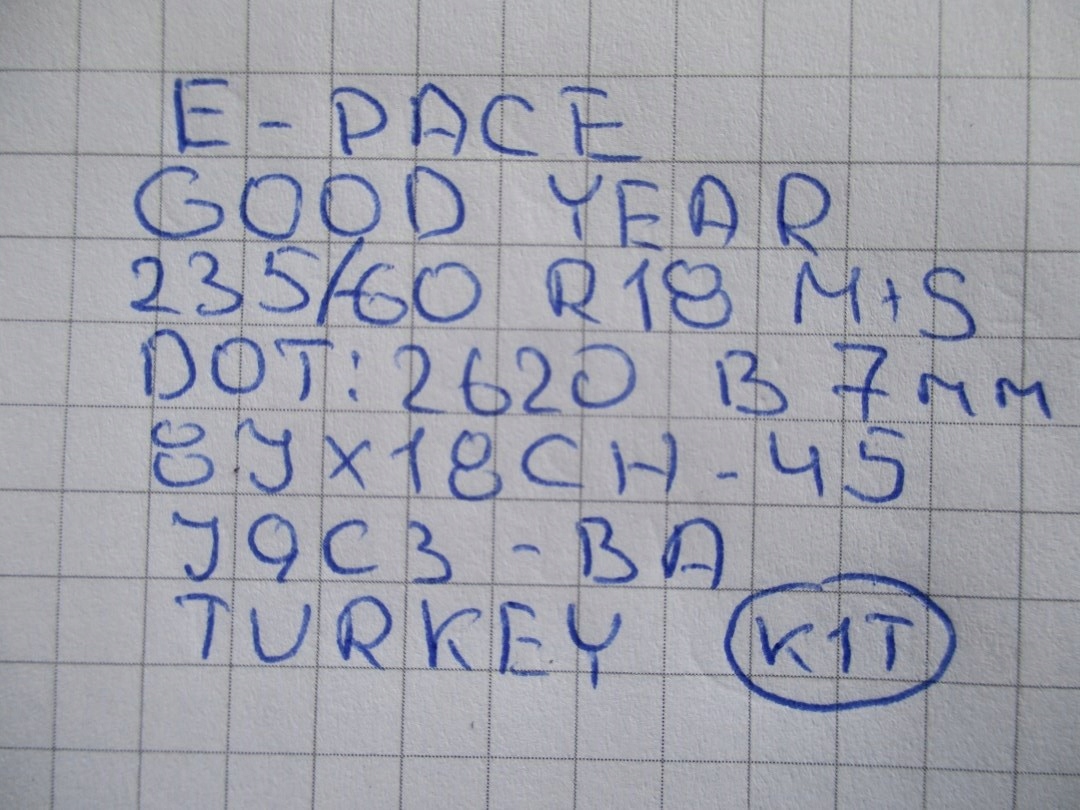 E-PACE
GOOD YEAR
235/60 R18 M+S
DOT: 2620 B 7мм
8J×18CH-45
J9C3-BA
TURKEY K1T